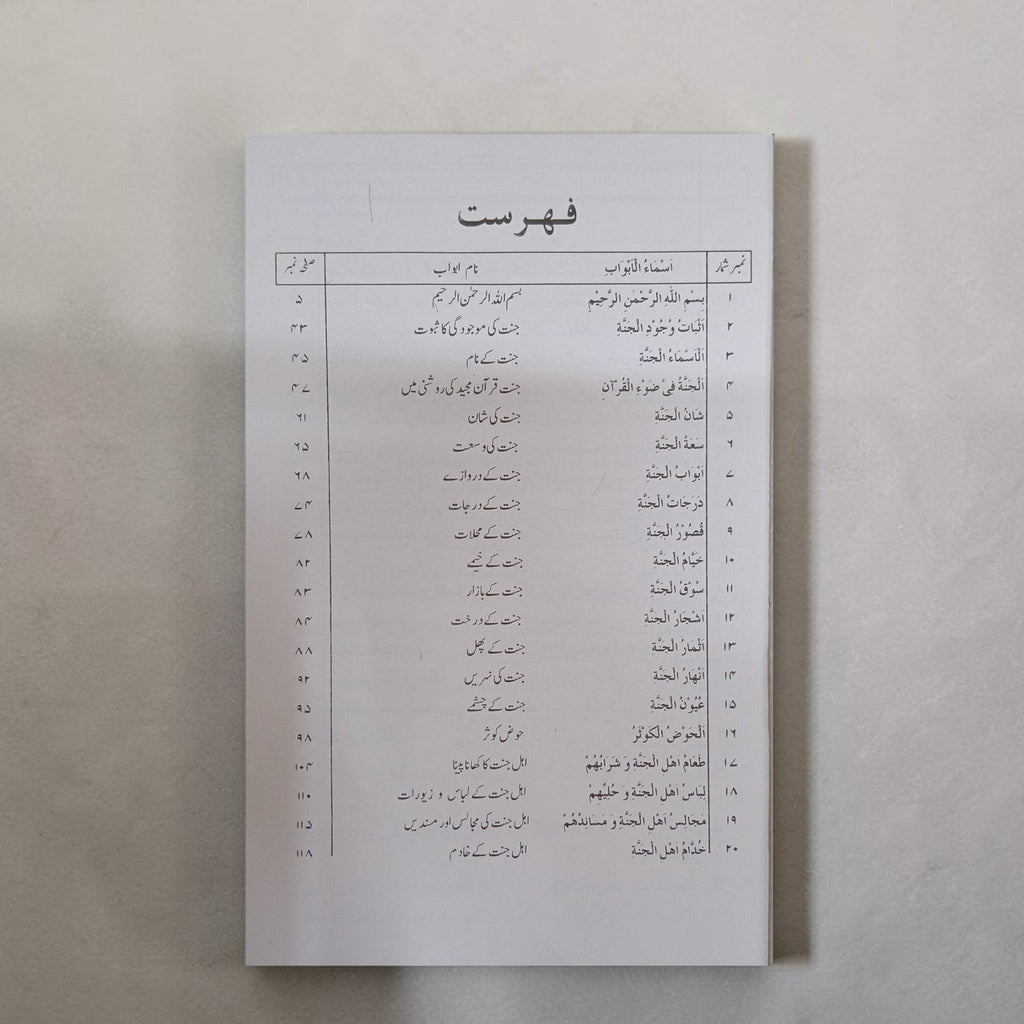 فہرست
نمبر شمار اَسْمَاءُ الْاَبْوَابِ نام ابواب صفحہ نمبر
۱ بِسْمِ اللّٰهِ الرَّحْمٰنِ الرَّحِيْمِ بسم اللہ الرحمٰن الرحیم ۵
۲ اَثْبَاتُ وُجُوْدِ الْجَنَّةِ جنت کی موجودگی کا ثبوت ۴۳
۳ اَلْاَسْمَاءُ الْجَنَّةِ جنت کے نام ۴۵
۴ اَلْجَنَّةُ فِیْ ضَوْءِ الْقُرْآنِ جنت قرآن مجید کی روشنی میں ۴۷
۵ شَانُ الْجَنَّةِ جنت کی شان ۶۱
۶ سَعَةُ الْجَنَّةِ جنت کی وسعت ۶۵
۷ اَبْوَابُ الْجَنَّةِ جنت کے دروازے ۶۸
۸ دَرَجَاتُ الْجَنَّةِ جنت کے درجات ۷۴
۹ قُصُوْرُ الْجَنَّةِ جنت کے محلات ۷۸
۱۰ خَيَّامُ الْجَنَّةِ جنت کے خیمے ۸۲
۱۱ سُوْقُ الْجَنَّةِ جنت کے بازار ۸۳
۱۲ اَشْجَارُ الْجَنَّةِ جنت کے درخت ۸۴
۱۳ اَثْمَارُ الْجَنَّةِ جنت کے پھل ۸۸
۱۴ اَنْهَارُ الْجَنَّةِ جنت کی نہریں ۹۲
۱۵ عُيُوْنُ الْجَنَّةِ جنت کے چشمے ۹۵
۱۶ اَلْحَوْضُ الْكَوْثَرُ حوض کوثر ۹۸
۱۷ طَعَامُ اَهْلِ الْجَنَّةِ وَ شَرَابُهُمْ اہل جنت کا کھانا پینا ۱۰۴
۱۸ لِبَاسُ اَهْلِ الْجَنَّةِ وَ حُلِيِّهِمْ اہل جنت کے لباس و زیورات ۱۱۰
۱۹ مَجَالِسُ اَهْلِ الْجَنَّةِ وَ مَسَانِدُهُمْ اہل جنت کی مجالس اور مسندیں ۱۱۵
۲۰ خُدَّامُ اَهْلِ الْجَنَّةِ اہل جنت کے خادم ۱۱۸